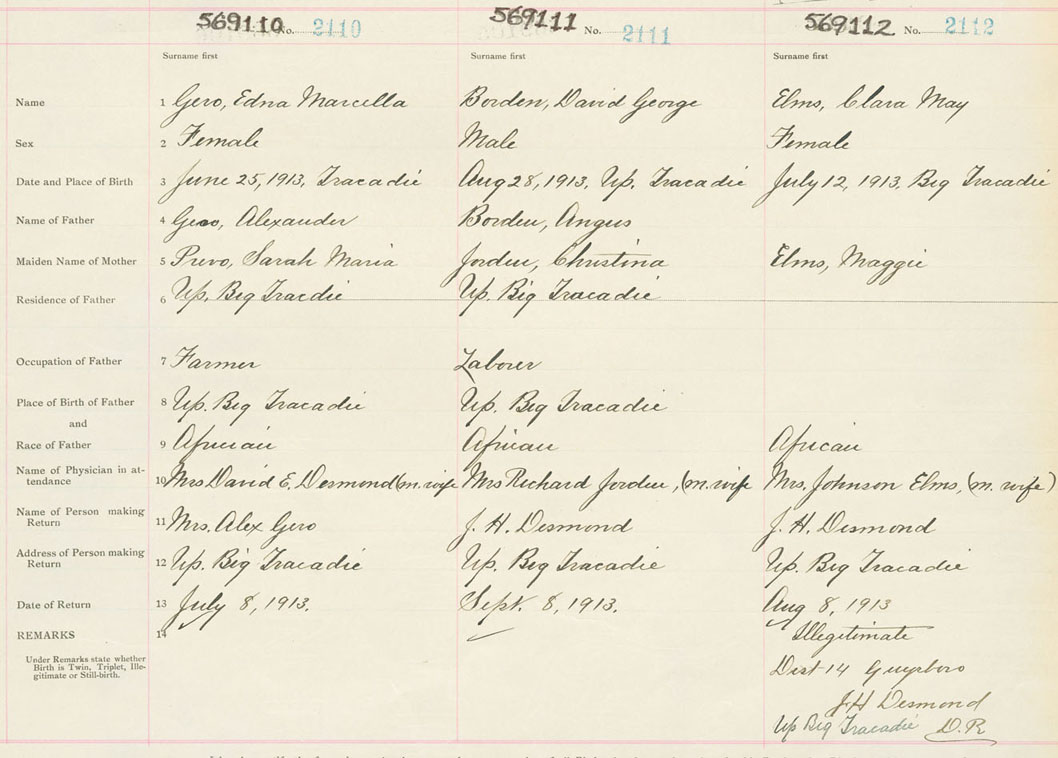 569110 No. 2110 569111 No. 2111 569112 No. 2112
Surname first Surname first Surname first
Name 1 Gero, Edna Marcella Borden, David George Elms, Clara May
Sex 2 Female Male Female
Date and Place of Birth 3 June 25, 1913, Tracadie Aug 28, 1913. Up. Tracadie July 12, 1913. Big Tracadie
Name of Father 4 Gero, Alexander Borden, Angus
Maiden Name of Mother 5 Prevo, Sarah Maria Jorden, Christina Elms, Maggie
Residence of Father 6 Up. Big Tracdie Up. Big Tracadie
Occupation of Father 7 Farmer Laborer
Place of Birth of Father 8 Up. Big Tracadie Up. Big Tracadie
and
Race of Father 9 African African African
Name of Physician in at-
tendance 10 Mrs David E. Desmond (m. wife Mrs Richard Jorden, (m. wife Mrs. Johnson Elms, (m. wife)
Name of Person making
Return 11 Mrs. Alex Gero J. H. Desmond J. H. Desmond
Address of Person making
Return 12 Up. Big Tracadie Up. Big Tracadie Up. Big Tracadie
Date of Return 13 July 8, 1913. Sept. 8, 1913. Aug 8, 1913
REMARKS 14 Illegitimate
Under Remarks state whether
Birth is Twin, Triplet, Ille-
gitimate or Still-birth.
Dist 14 Guysboro
J H Desmond
Up Big Tracadie D. R